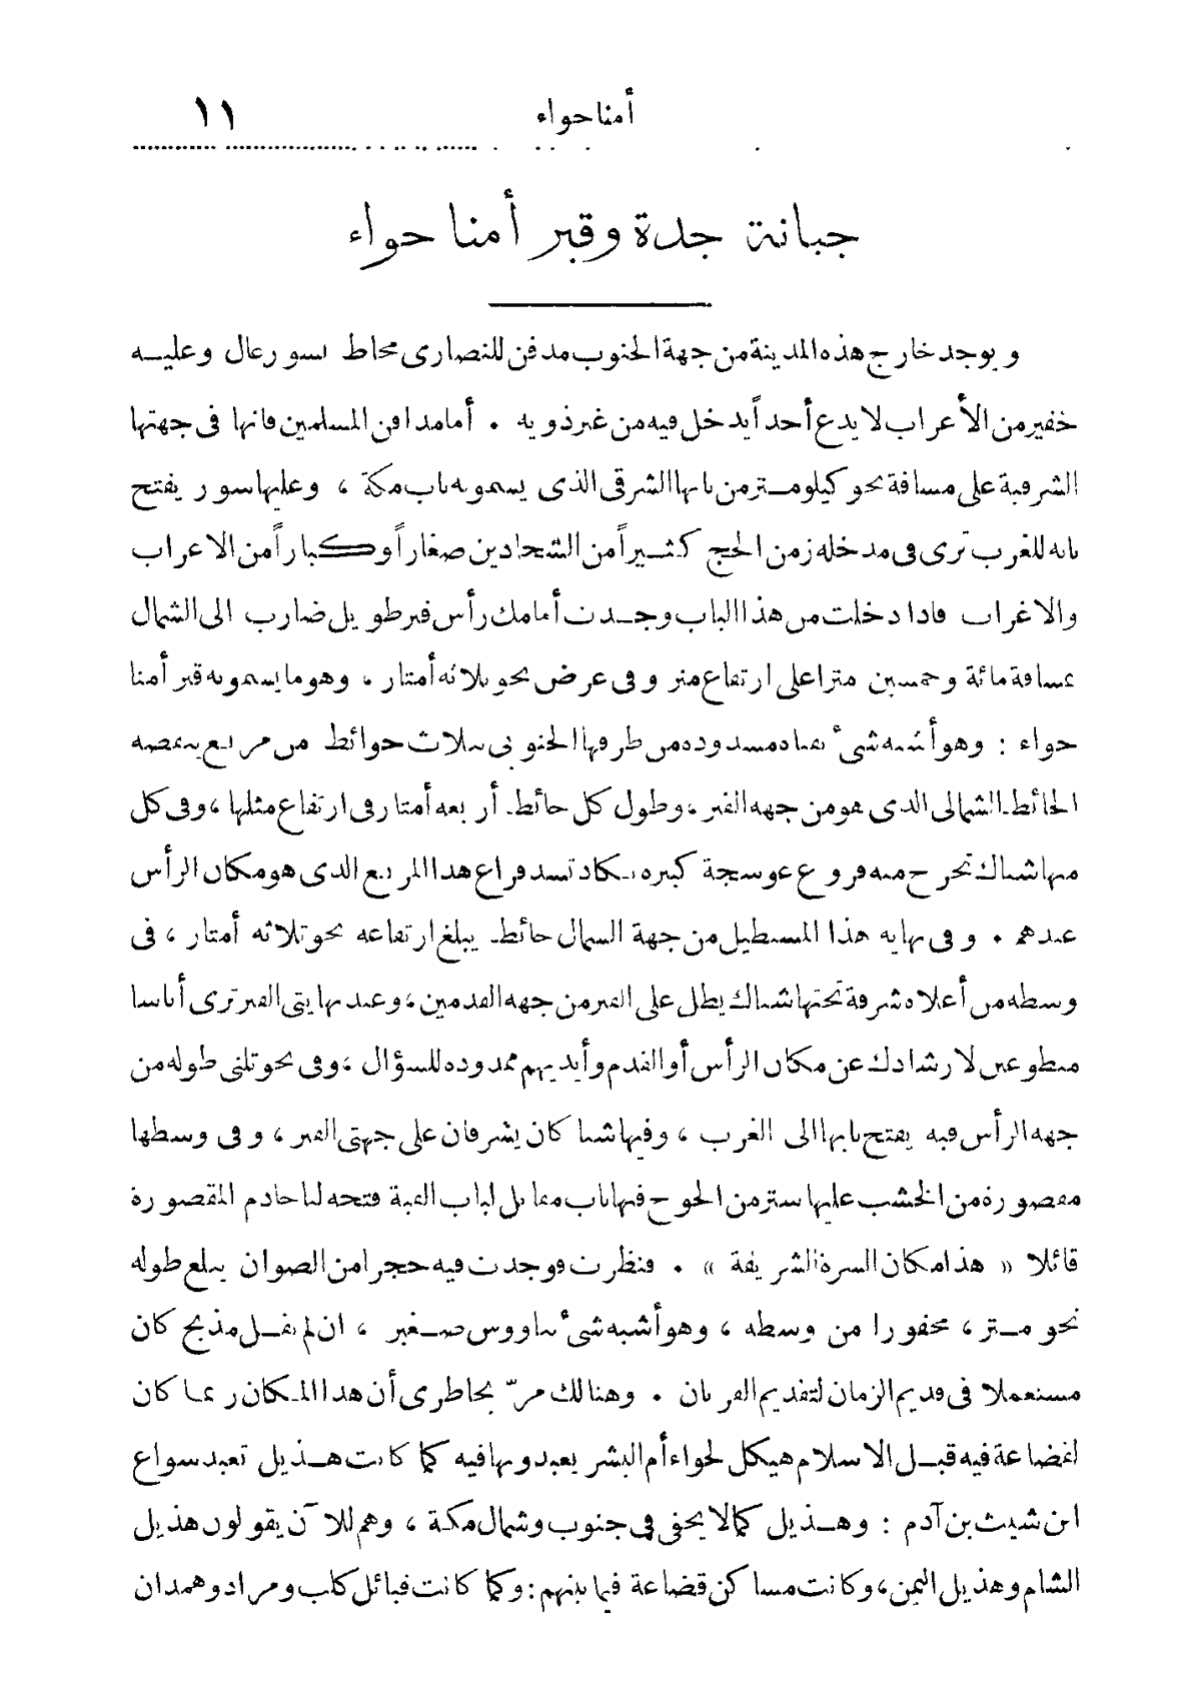 أمنا حواء ١١
جبانة جدة وقبر أمنا حواء
ويوجد خارج هذه المدينة من جهة الجنوب مدفن للنصارى محاط بسور عال وعليه
خفير من الأعراب لا يدع أحداً يدخل فيه من غير ذويه . أما مدافن المسلمين فانها فى جهتها
الشرقية على مسافة نحو كيلومتر من بابها الشرقى الذى يسمونه باب مكة ، وعليها سور يفتح
بابه للغرب ترى فى مدخله زمن الحج كثيراً من الشحادين صغاراً وكباراً من الاعراب
والاغراب فاذا دخلت من هذا الباب وجدت أمامك رأس قبر طويل ضارب الى الشمال
بمسافة مائة وخمسين مترا على ارتفاع متر وفى عرض نحو ثلاثة أمتار ، وهو ما يسمونه قبر أمنا
حواء : وهو أشبه شىء بقناة مسدودة من طرفها الجنوبى بثلاث حوائط من مربع ينقصه
الحائط الشمالى الذى هو من جهة القبر ، وطول كل حائط أربعة أمتار فى ارتفاع مثلها ، وفى كل
منها شباك تخرج منه فروع عوسجة كبيرة تكاد تسد فراغ هذا المربع الذى هو مكان الرأس
عندهم . وفى نهاية هذا المستطيل من جهة الشمال حائط يبلغ ارتفاعه نحو ثلاثة أمتار ، فى
وسطه من أعلاه شرفة تحتها شباك يطل على القبر من جهة القدمين ، وعند نهايتى القبر ترى أناسا
متطوعين لارشادك عن مكان الرأس أو القدم وأيديهم ممدودة للسؤال ، وفى نحو ثلثى طوله من
جهة الرأس قبة يفتح بابها الى الغرب ، وفيها شباكان يشرفان على جهتى القبر ، وفى وسطها
مقصورة من الخشب عليها ستر من الجوخ فيها باب مقابل لباب القبة فتحه لنا خادم المقصورة
قائلا « هذا مكان السرة الشريفة » . فنظرت فوجدت فيه حجرا من الصوان يبلغ طوله
نحو متر ، محفورا من وسطه ، وهو أشبه شىء بناووس صغير ، ان لم نقل مذبح كان
مستعملا فى قديم الزمان لتقديم القربان . وهنالك مرّ بخاطرى أن هذا المكان ربما كان
لقضاعة فيه قبل الاسلام هيكل لحواء أم البشر يعبدونها فيه كما كانت هذيل تعبد سواع
ابن شيث بن آدم : وهذيل كما لا يخفى فى جنوب وشمال مكة ، وهم للآن يقولون هذيل
الشام وهذيل اليمن ، وكانت مساكن قضاعة فيما بينهم : وكما كانت قبائل كلب ومراد وهمدان